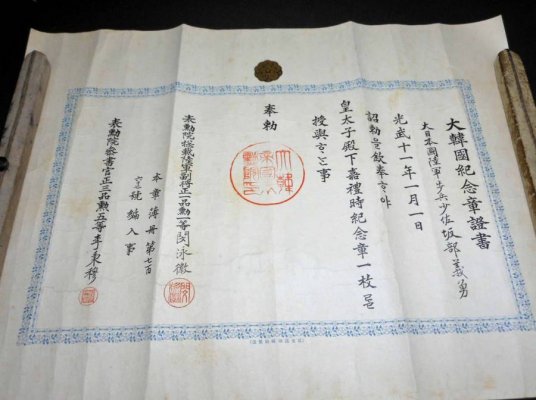 大韓國紀念章證書
大日本國陸軍步兵少佐坂部義勇
光武十一年一月一日
詔勅를欽奉ᄒᆞ야
皇太子殿下嘉禮時紀念章一枚를
授與ᄒᆞᆫ事
奉勅
表勳院總裁陸軍副將正一品勳一等閔泳徽
本章簿冊第七百
號編入事
表勳院參書官正三品勳五等